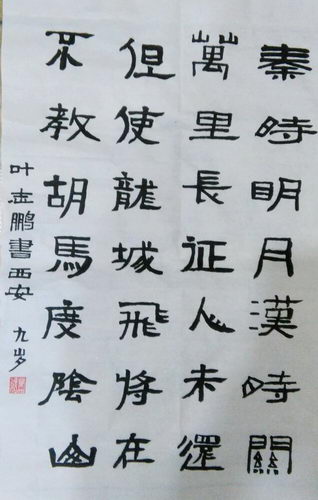 秦時明月漢時關
萬里長征人未還
但使龍城飛將在
不教胡馬度陰山
叶志鹏書西安 九岁